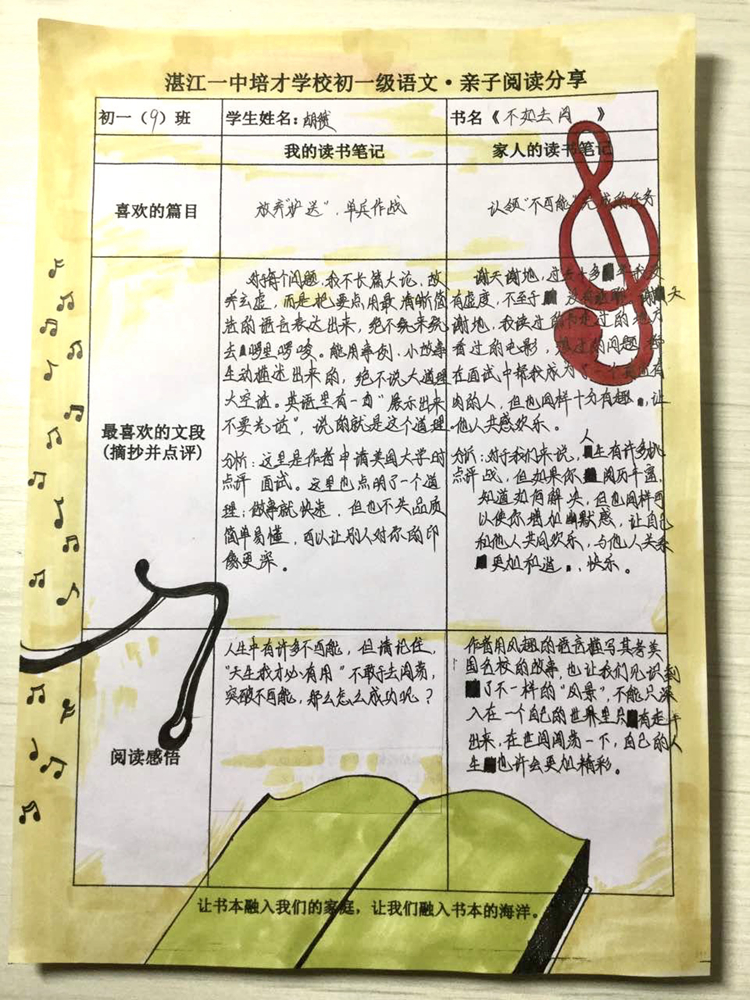 湛江一中培才学校初一级语文·亲子阅读分享
初一（9）班
学生姓名：胡
书名《 不如去闯 》
我的读书笔记
家人的读书笔记
喜欢的篇目
放弃"护送"，单兵作战
认领"不可能"完成的任务
最喜欢的文段
(摘抄并点评)
对每个问题，我不长篇大论，故
弄玄虚，而是把要点用最清晰简
的语言表达出来，绝不绕来绕
去啰里啰唆。能用事例、小故事
生动描述出来的，绝不说大道理
大空话。英语里有一句"展示出来
不要光说"，说的就是这个道理。
分析：这里是作者申请美国大学时
点评 面试。这里也点明了一个道
理：做事就快速，但也不失品质
简单易懂，可以让别人对你的印
象更深。
谢天谢地，过去十多
有虚度，不至于 天
谢地，我读过的书走过的地
看过的电影，想过的问题，都
在面试中帮我成为了一个
的人，但也同样十分有趣，让
他人共感欢乐。
分析：对于我们来说，人生有许多挑
点评 战，但如果你阅历丰富，
知道如何解决，但也同样可
以使你增加幽默感，让自己
和他人共同欢乐，与他人关系
更加和谐、快乐。
阅读感悟
人生中有许多不可能，但请记住，
"天生我才必有用"不敢于去闯荡，
突破不可能，那么怎么成功呢？
作者用风趣的语言描写其考美
国名校的故事，也让我们见识到
了不一样的"风景"，不能只深
入在一个自己的世界里只有走
出来，在世间闯荡一下，自己的人
生也许会更加精彩。
让书本融入我们的家庭，让我们融入书本的海洋。